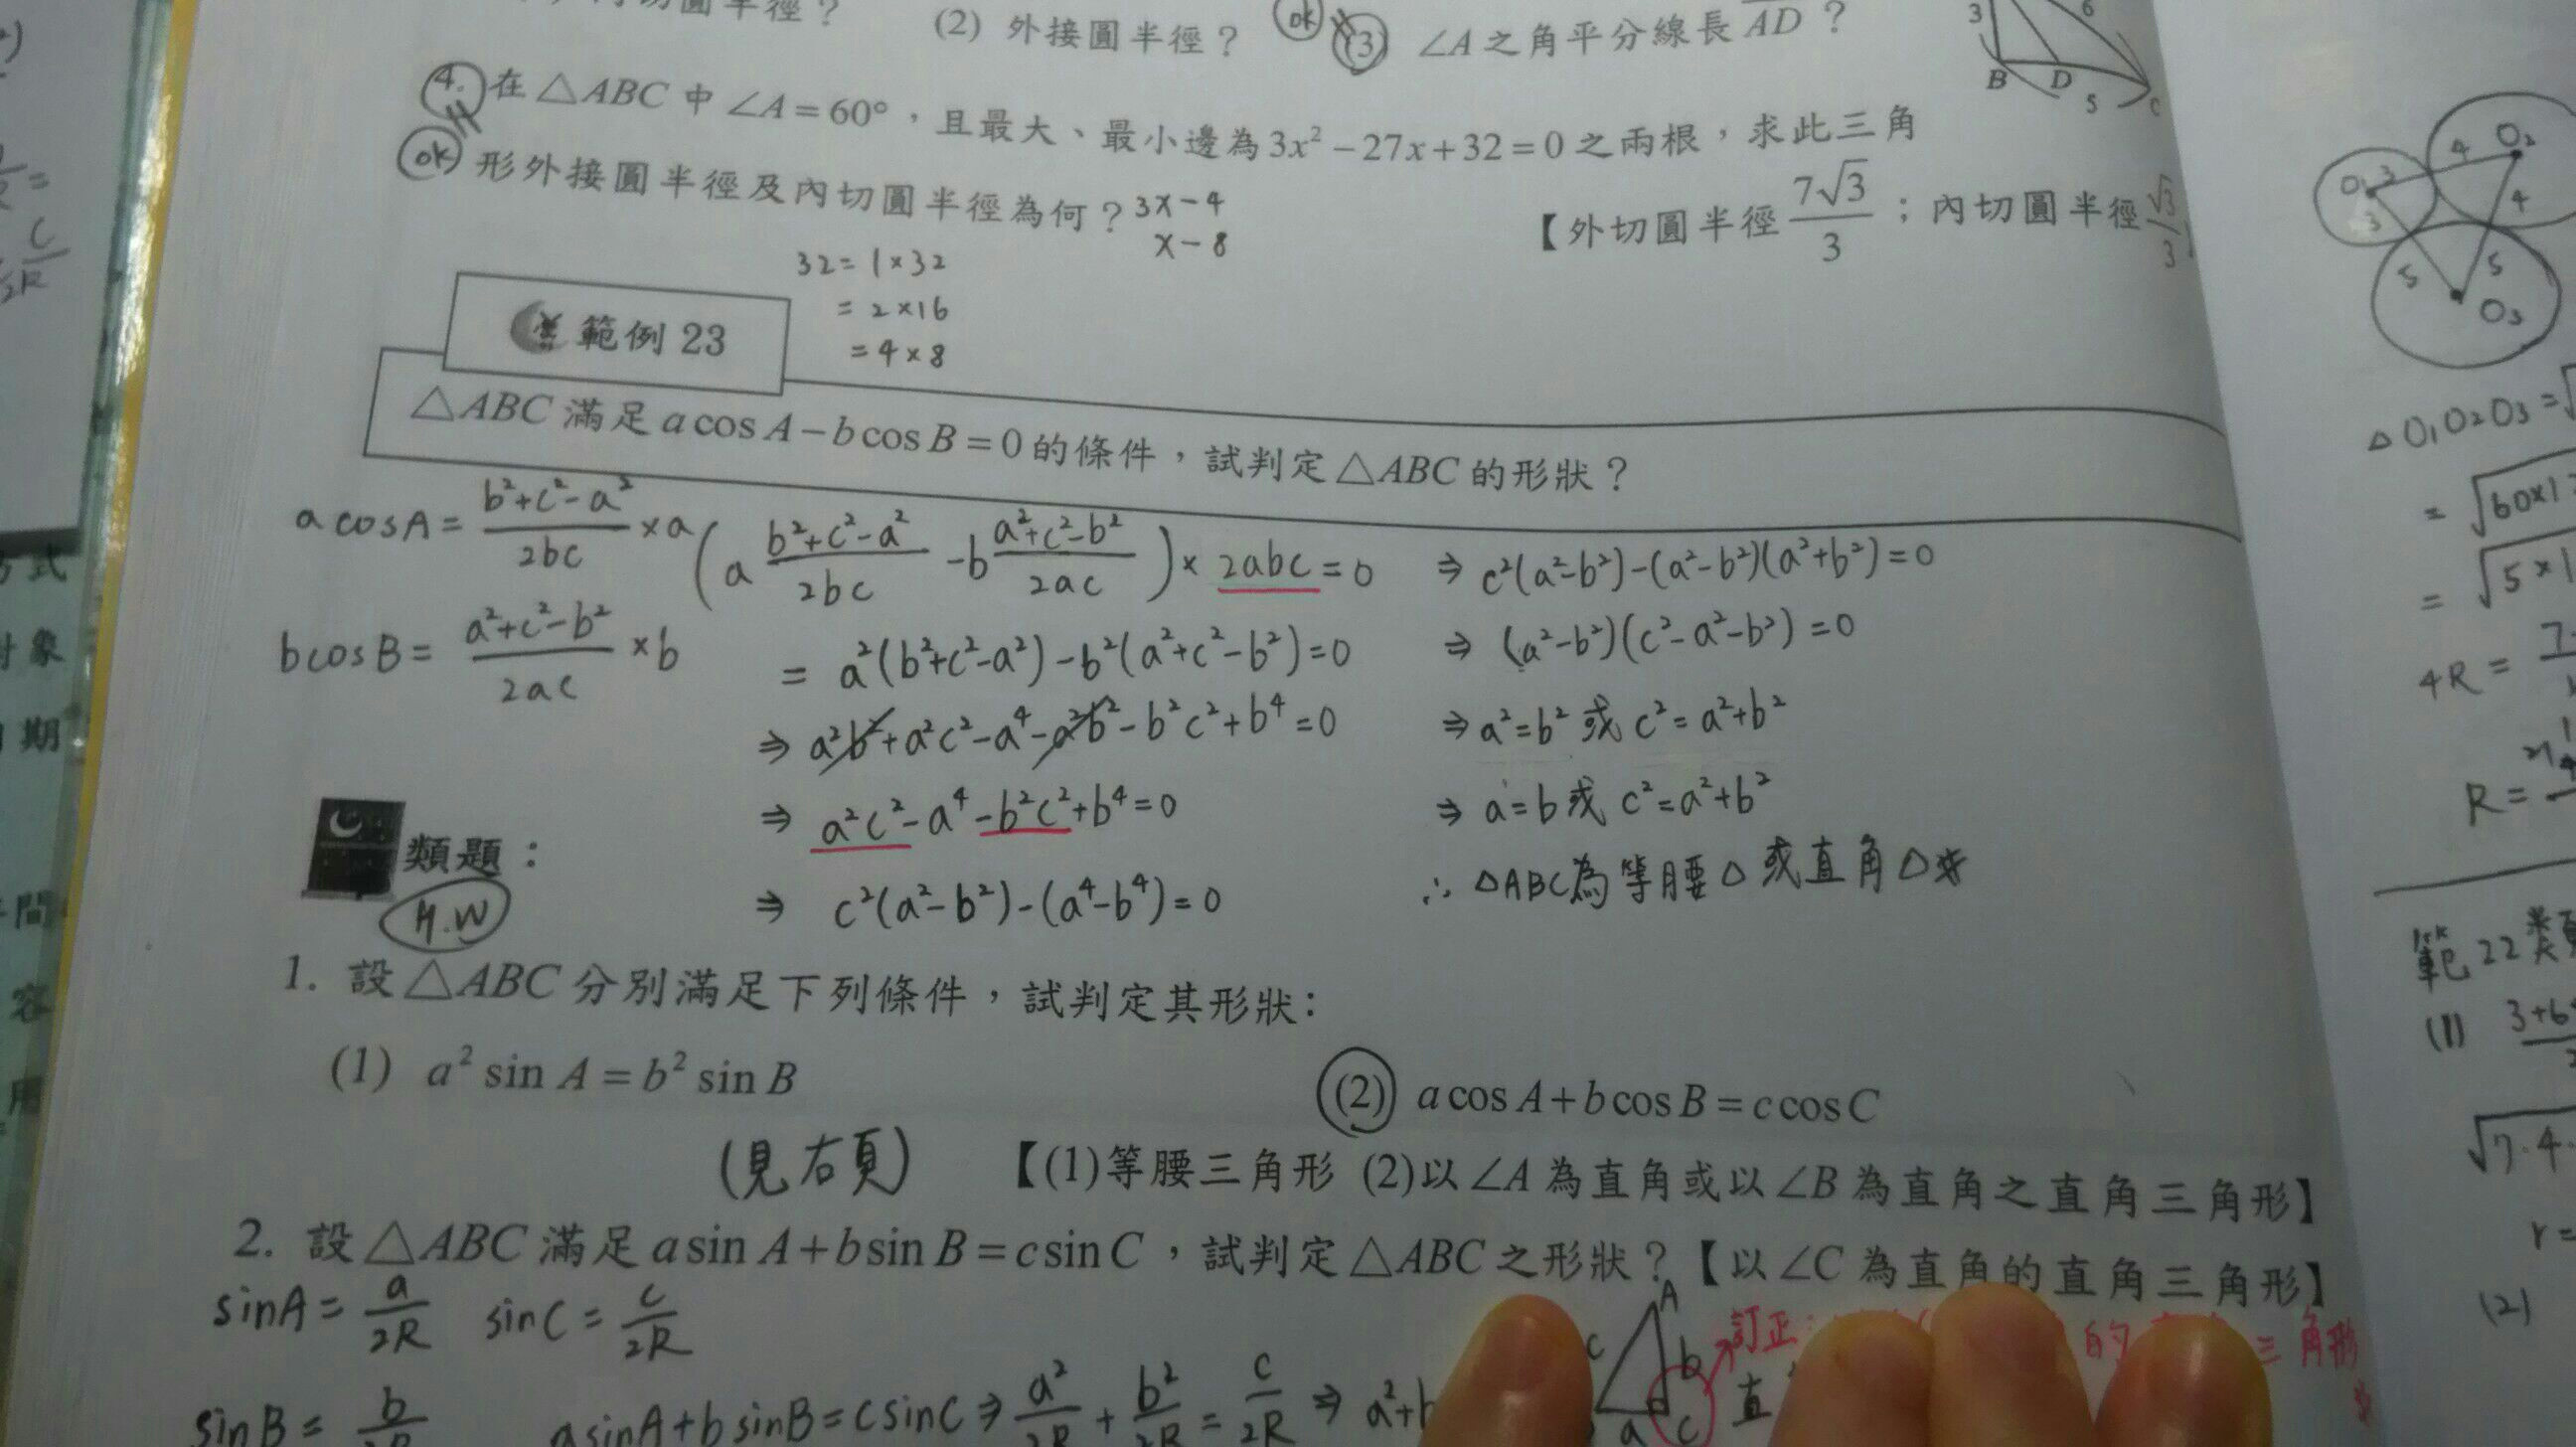 (2) 外接圓半徑？ ok (3) ∠A之角平分線長 AD？
3 6 B D 5 C
4. 在△ABC中∠A=60°，且最大、最小邊為3x²−27x+32=0之兩根，求此三角
ok 形外接圓半徑及內切圓半徑為何？
3x−4
x−8
【外切圓半徑 7√3/3；內切圓半徑 √3/3
32=1×32
=2×16
=4×8
範例 23
△ABC滿足a cos A−b cos B=0的條件，試判定△ABC的形狀？
a cosA= (b²+c²−a²)/2bc ×a
b cosB= (a²+c²−b²)/2ac ×b
(a (b²+c²−a²)/2bc −b (a²+c²−b²)/2ac)×2abc=0
= a²(b²+c²−a²)−b²(a²+c²−b²)=0
⇒ a²b²+a²c²−a⁴−a²b²−b²c²+b⁴=0
⇒ a²c²−a⁴−b²c²+b⁴=0
⇒ c²(a²−b²)−(a⁴−b⁴)=0
⇒ c²(a²−b²)−(a²−b²)(a²+b²)=0
⇒ (a²−b²)(c²−a²−b²)=0
⇒ a²=b² 或 c²=a²+b²
⇒ a=b 或 c²=a²+b²
∴ △ABC為等腰△或直角△
類題：
H.W
1. 設△ABC分別滿足下列條件，試判定其形狀：
(1) a² sin A=b² sin B
(2) a cos A+b cos B=c cos C
(見右頁)
【(1)等腰三角形 (2)以∠A為直角或以∠B為直角之直角三角形】
2. 設△ABC滿足a sin A+b sin B=c sin C，試判定△ABC之形狀？【以∠C為直角的直角三角形】
sinA= a/2R sinC= c/2R
sinB= b/2R
a sinA+b sinB=c sinC ⇒ a²/2R + b²/2R = c/2R ⇒ a²+b
A c b a C
訂正：
的
三角形
直
O₁ 3 4 O₂
3 4
5 5
O₃
△O₁O₂O₃=
=√60×1
=√5×1
4R=
R=
範22類
(1) 3+6
√7·4·
r=
(2)